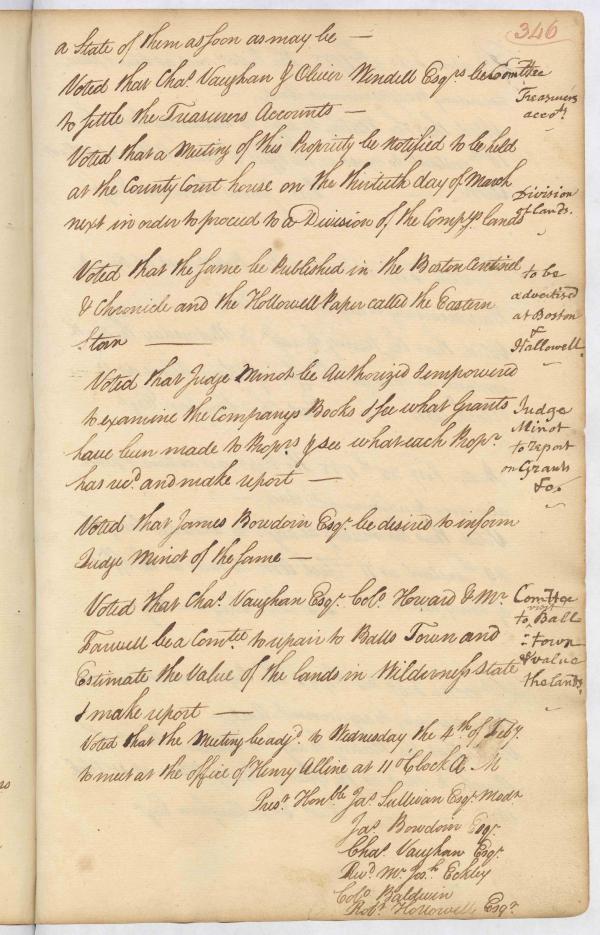 346
a State of them as soon as may be —
Voted that Chas. Vaughan & Oliver Wendell Esqrs be Comttee
to settle the Treasurers Accounts —
Comttee
Treasurers
accots.
Voted that a Meeting of this Propriety be notified to be held
at the County Court house on the thirtieth day of March
next in order to proceed to a Division of the Compys. lands
Division
of lands.
Voted that the same be Published in the Boston Centinel
& Chronicle and the Hollowell Paper called the Eastern
Starr —
to be
advertised
at Boston
&
Hallowell.
Voted that Judge Minot be Authorized & empowered
to examine the Companys Books & see what Grants
have been made to Proprs & see what each Propr.
has recd. and make report —
Judge
Minot
to report
on Grants
&c.
Voted that James Bowdoin Esqr. be desired to inform
Judge Minot of the same —
Voted that Chas. Vaughan Esqr. Colo. Howard & Mr.
Farwell be a Comtee to repair to Balls Town and
Estimate the Value of the lands in Wilderness State
& make report —
Comttee
to visit Ball
:town
& value
the lands.
Voted that the Meeting be adjd. to Wednesday the 4th of Feby.
to meet at the office of Henry Alline at 11 oClock A M
Prest. Honble Jas. Sullivan Esqr. Modr.
Jas. Bowdoin Esqr.
Chas. Vaughan Esqr.
Revd. Mr. Josh. Eckley
Colo. Baldwin
Robt. Hollowell Esqr.